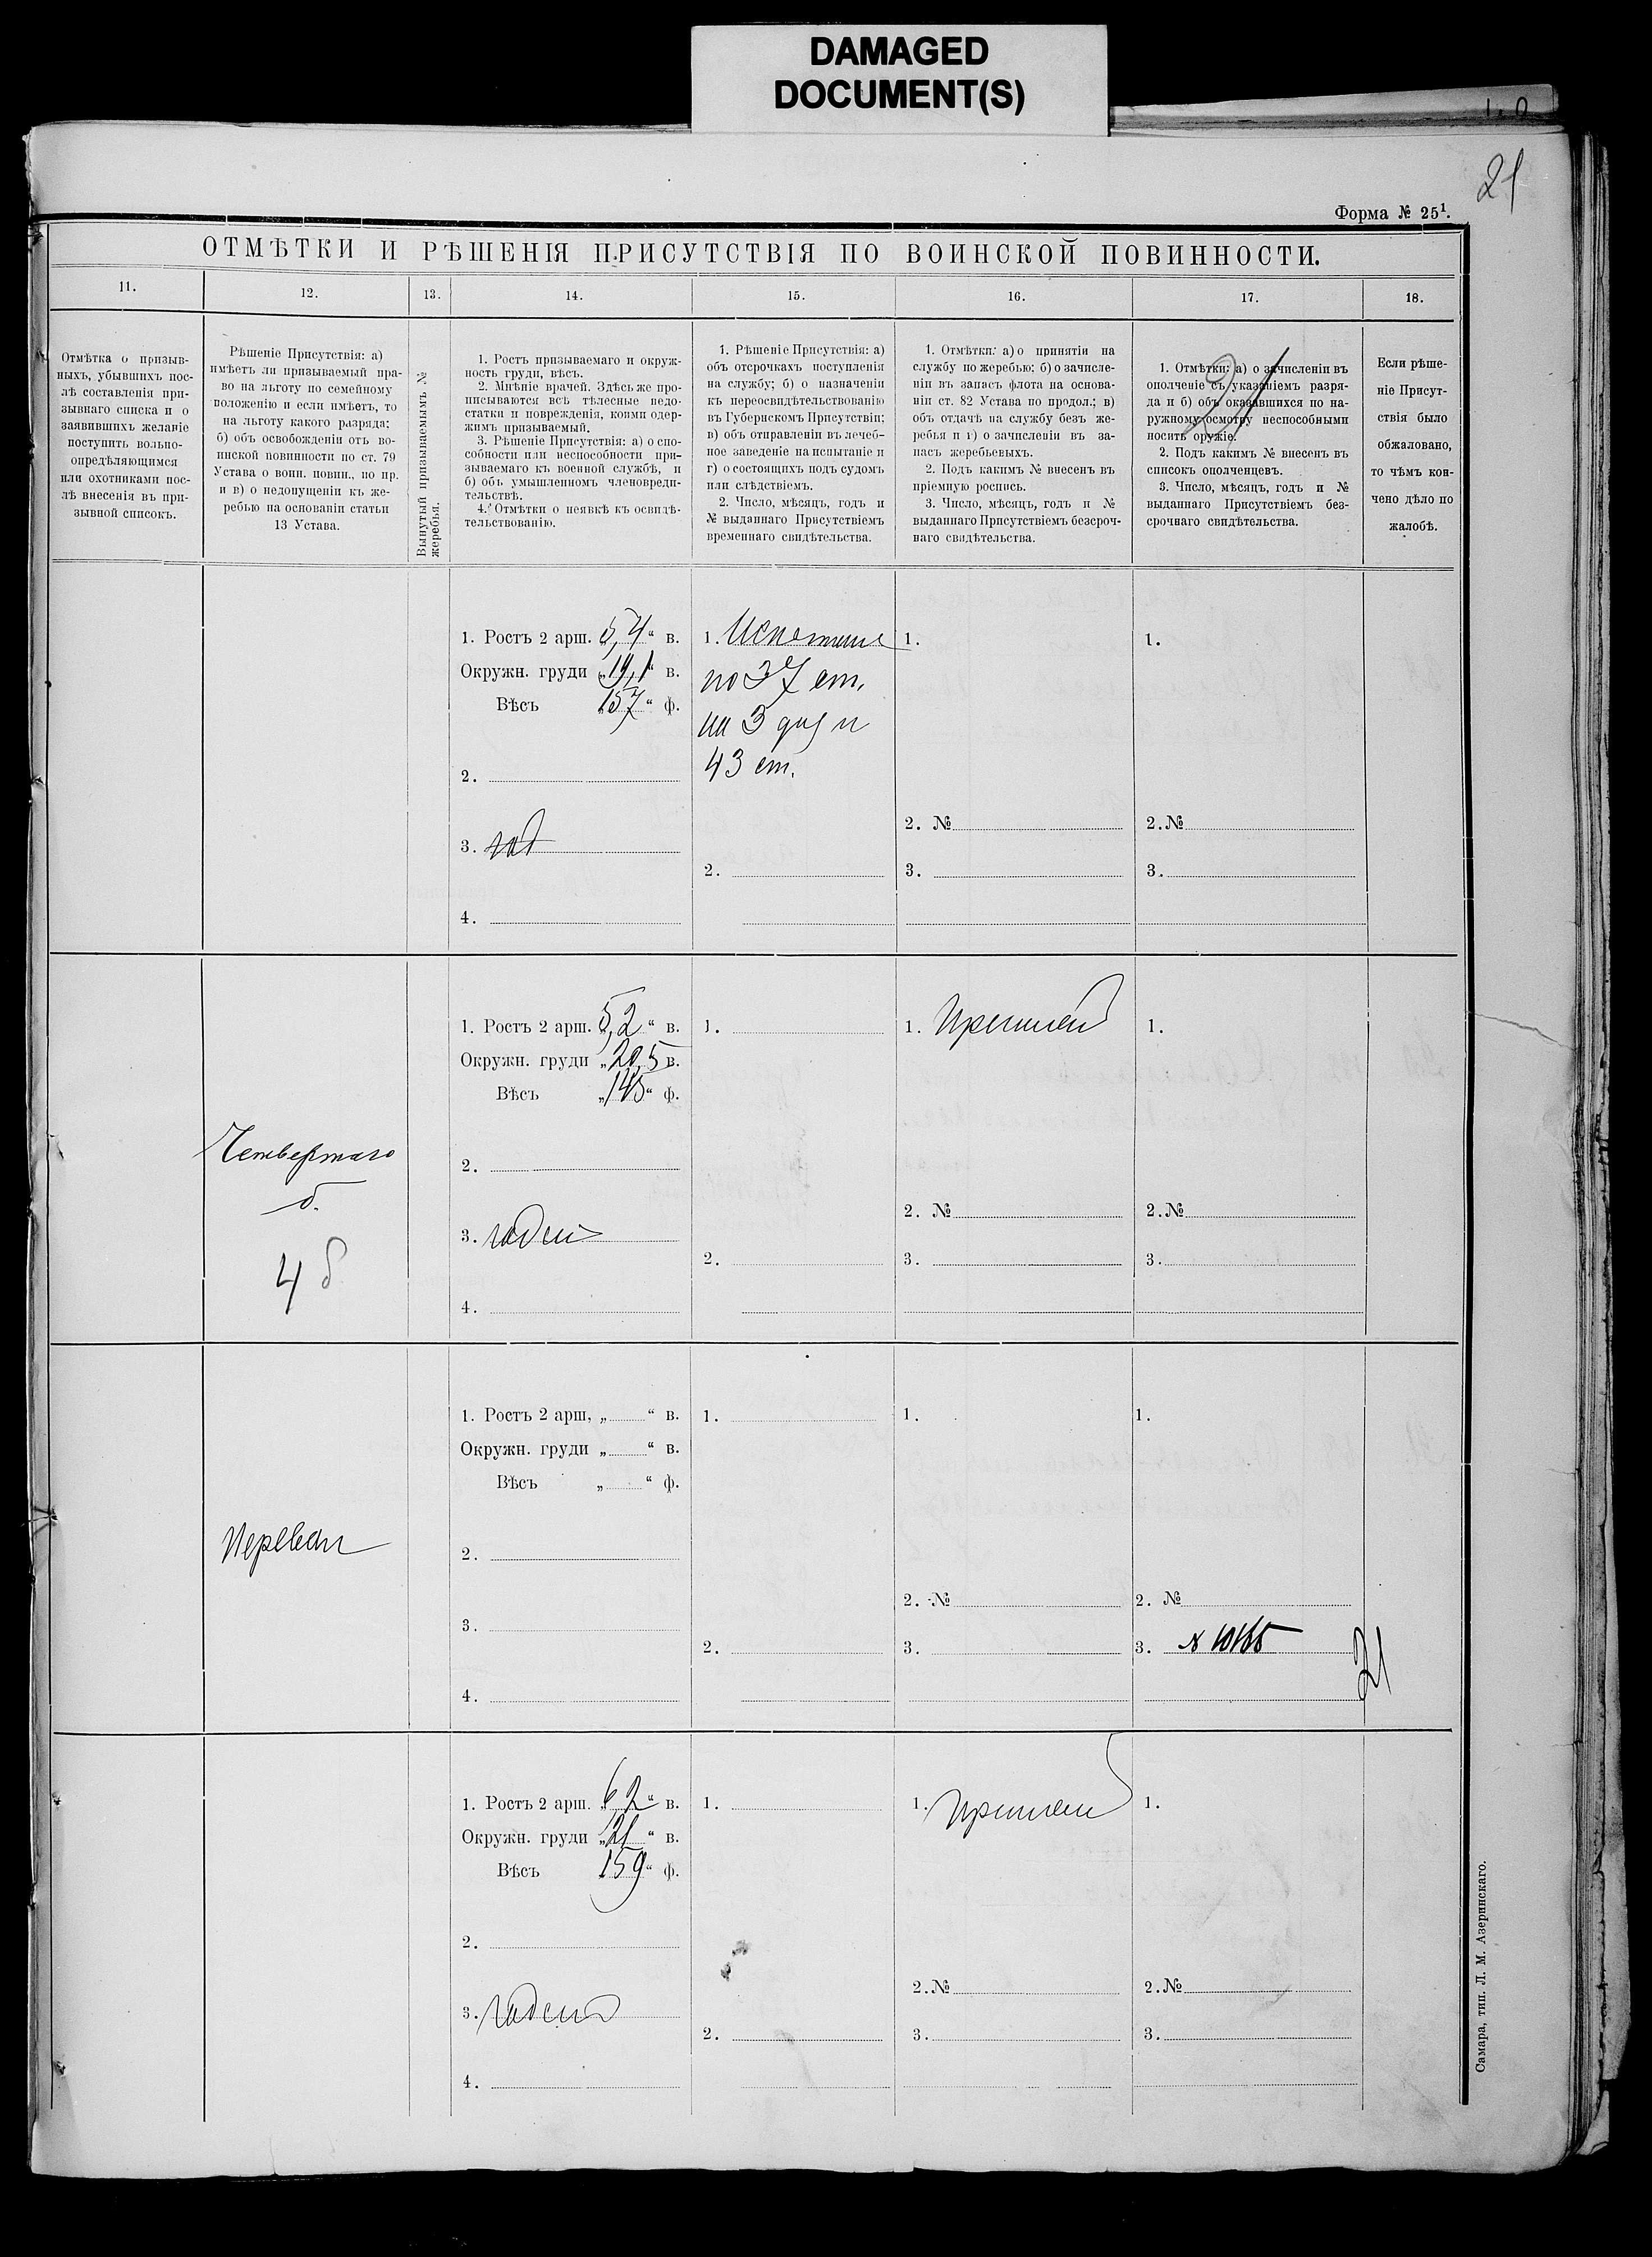 DAMAGED
DOCUMENT(S)
21
Форма № 25¹.
ОТМѢТКИ И РѢШЕНІЯ ПРИСУТСТВІЯ ПО ВОИНСКОЙ ПОВИННОСТИ.
11.
12.
13.
14.
15.
16.
17.
18.
Отмѣтка о призыв-
ныхъ, убывшихъ пос-
лѣ составленія при-
зывнаго списка и о
заявившихъ желаніе
поступить вольно-
опредѣляющимся
или охотниками пос-
лѣ внесенія въ при-
зывной списокъ.
Рѣшеніе Присутствія: а)
имѣетъ ли призываемый пра-
во на льготу по семейному
положенію и если имѣетъ, то
на льготу какого разряда;
б) объ освобожденіи отъ во-
инской повинности по ст. 79
Устава о воин. повин., по пр.
и в) о недопущеніи къ же-
ребью на основаніи статьи
13 Устава.
Вынутый призываемымъ №
жеребья.
1. Ростъ призываемаго и окруж-
ность груди, вѣсъ.
2. Мнѣніе врачей. Здѣсь же про-
писываются всѣ тѣлесные недо-
статки и поврежденія, коими одер-
жимъ призываемый.
3. Рѣшеніе Присутствія: а) о спо-
собности или неспособности при-
зываемаго къ военной службѣ, и
б) объ умышленномъ членовреди-
тельствѣ.
4. Отмѣтки о неявкѣ къ освидѣ-
тельствованію.
1. Рѣшеніе Присутствія: а)
объ отсрочкахъ поступленія
на службу; б) о назначеніи
къ переосвидѣтельствованію
въ Губернскомъ Присутствіи;
в) объ отправленіи въ лечеб-
ное заведеніе на испытаніе и
г) о состоящихъ подъ судомъ
или слѣдствіемъ.
2. Число, мѣсяцъ, годъ и
№ выданнаго Присутствіемъ
временнаго свидѣтельства.
1. Отмѣтки: а) о принятіи на
службу по жеребью; б) о зачисле-
ніи въ запасъ флота на основа-
ніи ст. 82 Устава по продол.; в)
объ отдачѣ на службу безъ же-
ребья и г) о зачисленіи въ за-
пасъ жеребьевыхъ.
2. Подъ какимъ № внесенъ въ
пріемную роспись.
3. Число, мѣсяцъ, годъ и №
выданнаго Присутствіемъ безсроч-
наго свидѣтельства.
21
1. Отмѣтки: а) о зачисленіи въ
ополченіе съ указаніемъ разря-
да и б) объ оказавшихся по на-
ружному осмотру неспособными
носить оружіе.
2. Подъ какимъ № внесенъ въ
списокъ ополченцевъ.
3. Число, мѣсяцъ, годъ и №
выданнаго Присутствіемъ без-
срочнаго свидѣтельства.
Если рѣше-
ніе Присут-
ствія было
обжаловано,
то чѣмъ кон-
чено дѣло по
жалобѣ.
1. Ростъ 2 арш. 5,4 в.
Окружн. груди „19,1“ в.
Вѣсъ „157“ ф.
2.
3.
4.
1.
по 37 ст.
на 3 и
43 ст.
2.
1.
2. №
3.
1.
2. №
3.
Четвертаго
б.
4 б
1. Ростъ 2 арш. 5,2“ в.
Окружн. груди „20,5 в.
Вѣсъ „145“ ф.
2.
3. годен
4.
1.
2.
1. Принят
2. №
3.
1.
2. №
3.
1. Ростъ 2 арш. „ “ в.
Окружн. груди „ “ в.
Вѣсъ „ “ ф.
2.
3.
4.
1.
2.
1.
2. №
3.
1.
2. №
3. № 10165
21
1. Ростъ 2 арш. „6 2“ в.
Окружн. груди „21“ в.
Вѣсъ 159“ ф.
2.
3. годен
4.
1.
2.
1. принят
2. №
3.
1.
2. №
3.
Самара, тип. Л. М. Азеринскаго.